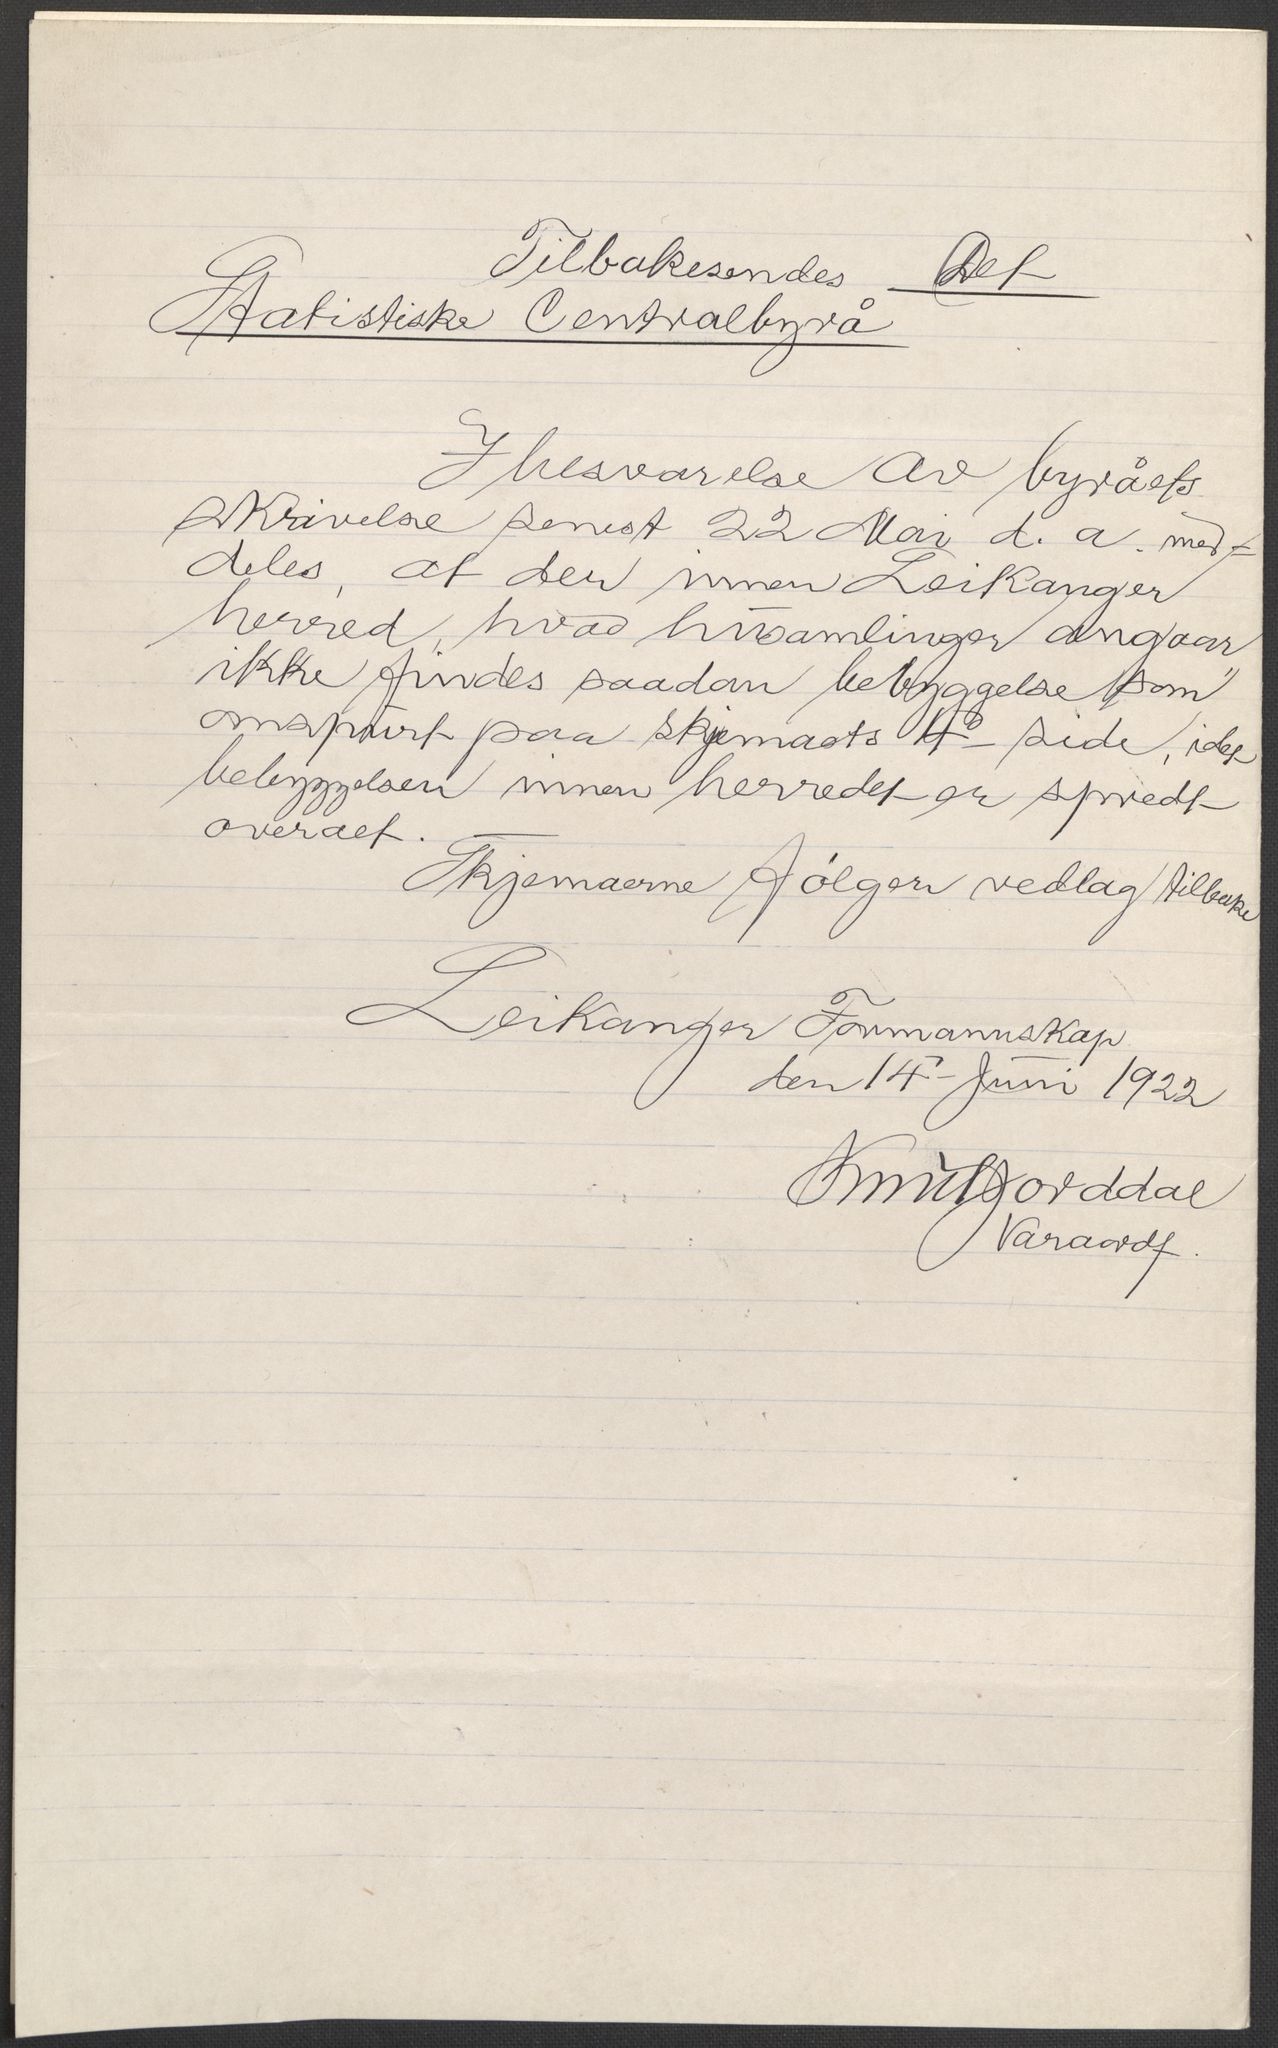 Tilbakesendes Det
Statistiske Centralbyrå
I besvarelse av byråets
skrivelse senest 22 Mai d. a. med-
deles, at der innen Leikanger
herred, hvad husamlinger angaar
ikke findes saadan bebyggelse som
omspurt paa skjemaets 4de side, idet
bebyggelsen innen herredet er spredt
overalt.
Skjemaerne følger vedlag tilbake
Leikanger Formannskap
den 14 Juni 1922
Knut Horddal
Varaordf.